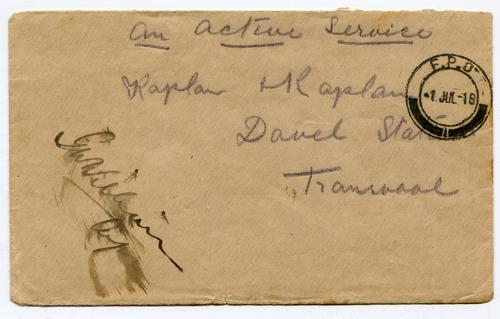 An Active Service
F.P.O
-1 JUL-18
Kaplan & Kaplan
Davel Station
Transvaal